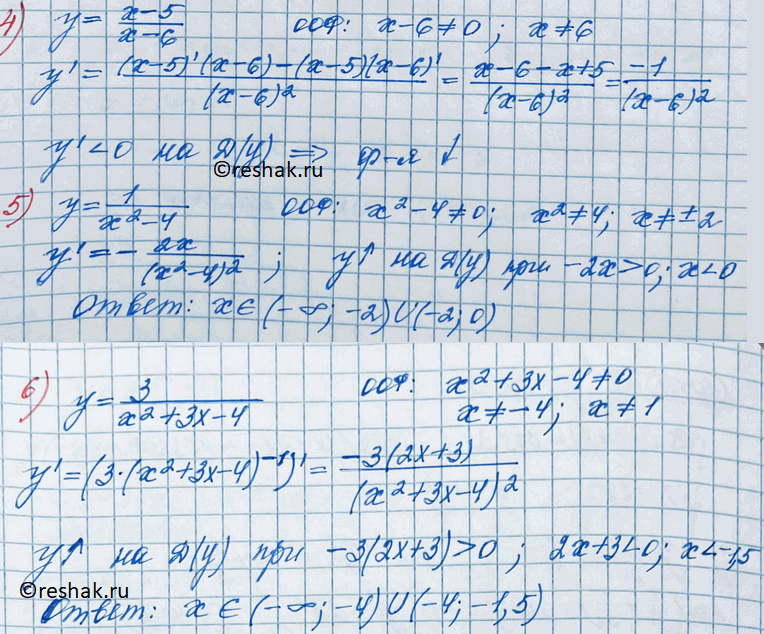 4) y = (x-5)/(x-6) ООФ: x-6≠0; x≠6
y' = ((x-5)'(x-6)-(x-5)(x-6)')/(x-6)² = (x-6-x+5)/(x-6)² = -1/(x-6)²
y'<0 на D(y) ⇒ ф-я ↓
©reshak.ru
5) y = 1/(x²-4) ООФ: x²-4≠0; x²≠4; x≠±2
y' = - 2x/(x²-4)²; y↑ на D(y) при -2x>0; x<0
Ответ: x∈(-∞; -2)∪(-2; 0)
6) y = 3/(x²+3x-4) ООФ: x²+3x-4≠0
x≠-4; x≠1
y' = (3·(x²+3x-4)⁻¹)' = -3(2x+3)/(x²+3x-4)²
y↑ на D(y) при -3(2x+3)>0; 2x+3<0; x<-1,5
©reshak.ru
Ответ: x∈(-∞; -4)∪(-4; -1,5)